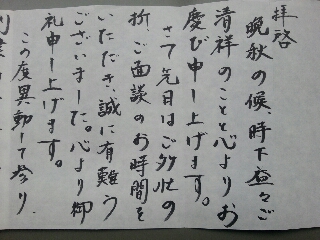 拝啓
晩秋の候、時下益々ご
清祥のことと心よりお
慶び申し上げます。
さて先日はご多忙の
折、ご面談のお時間を
いただき、誠に有難う
ございました。心より御
礼申し上げます。
この度異動して参り